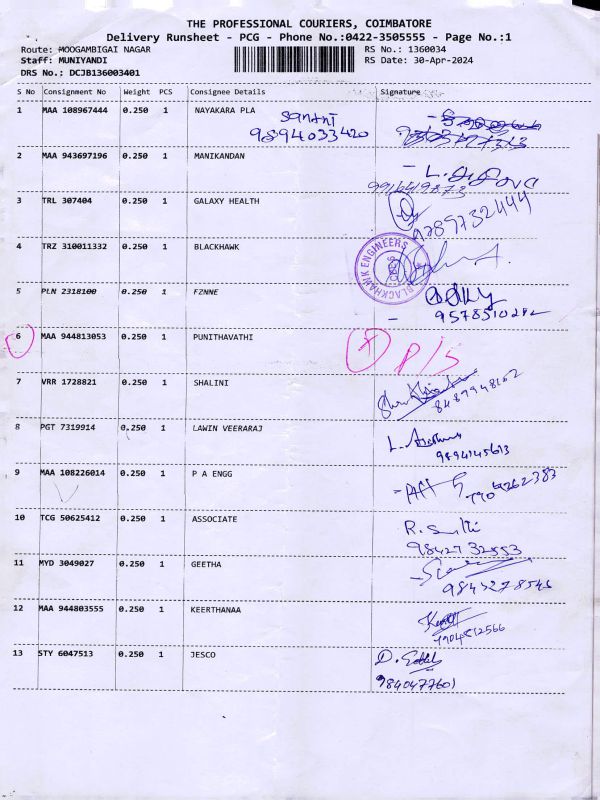 THE PROFESSIONAL COURIERS, COIMBATORE
Delivery Runsheet - PCG - Phone No.:0422-3505555 - Page No.:1
Route: MOOGAMBIGAI NAGAR
RS No.: 1360034
Staff: MUNIYANDI
RS Date: 30-Apr-2024
DRS No.: DCJB136003401
S No Consignment No Weight PCS Consignee Details Signature
1 MAA 108967444 0.250 1 NAYAKARA PLA
9894033420
2 MAA 943697196 0.250 1 MANIKANDAN
3 TRL 307404 0.250 1 GALAXY HEALTH
4 TRZ 310011332 0.250 1 BLACKHAWK
BLACKHAWK ENGINEERS
5 PLN 2318100 0.250 1 FZNNE
6 MAA 944813053 0.250 1 PUNITHAVATHI
P/S
7 VRR 1728821 0.250 1 SHALINI
8489948162
8 PGT 7319914 0.250 1 LAWIN VEERARAJ
9 MAA 108226014 0.250 1 P A ENGG
10 TCG 50625412 0.250 1 ASSOCIATE
98427 32553
11 MYD 3049027 0.250 1 GEETHA
12 MAA 944803555 0.250 1 KEERTHANAA
7904812566
13 STY 6047513 0.250 1 JESCO
9840477601